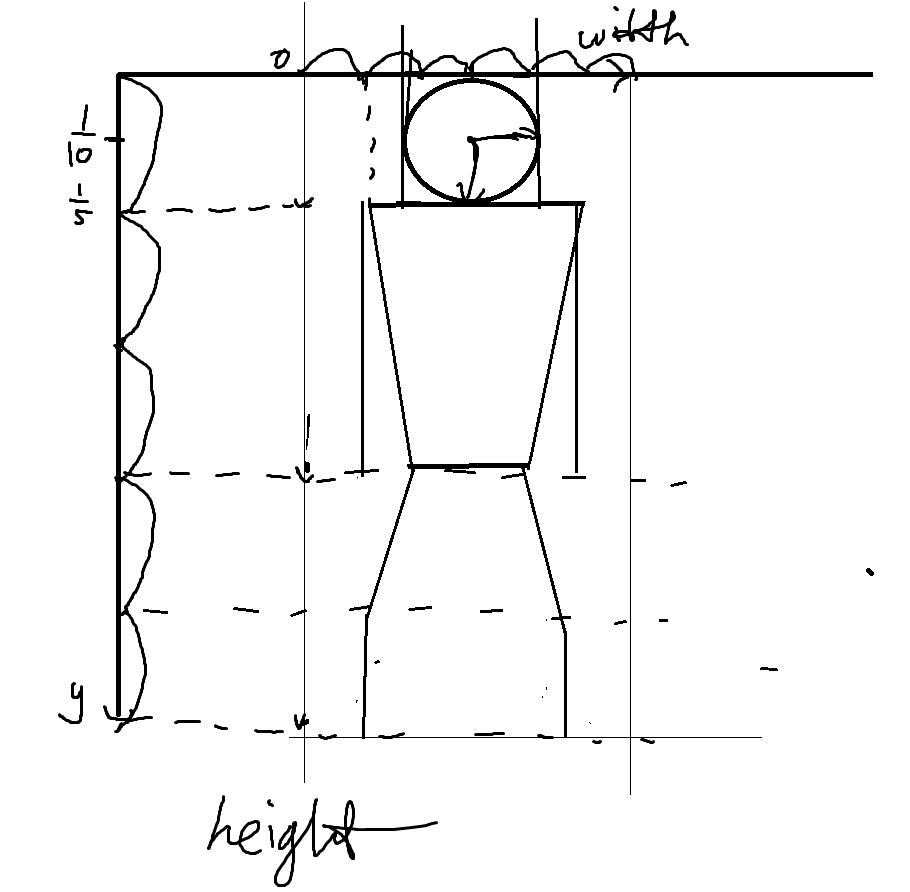 0 width
1/10
1/5
y
height